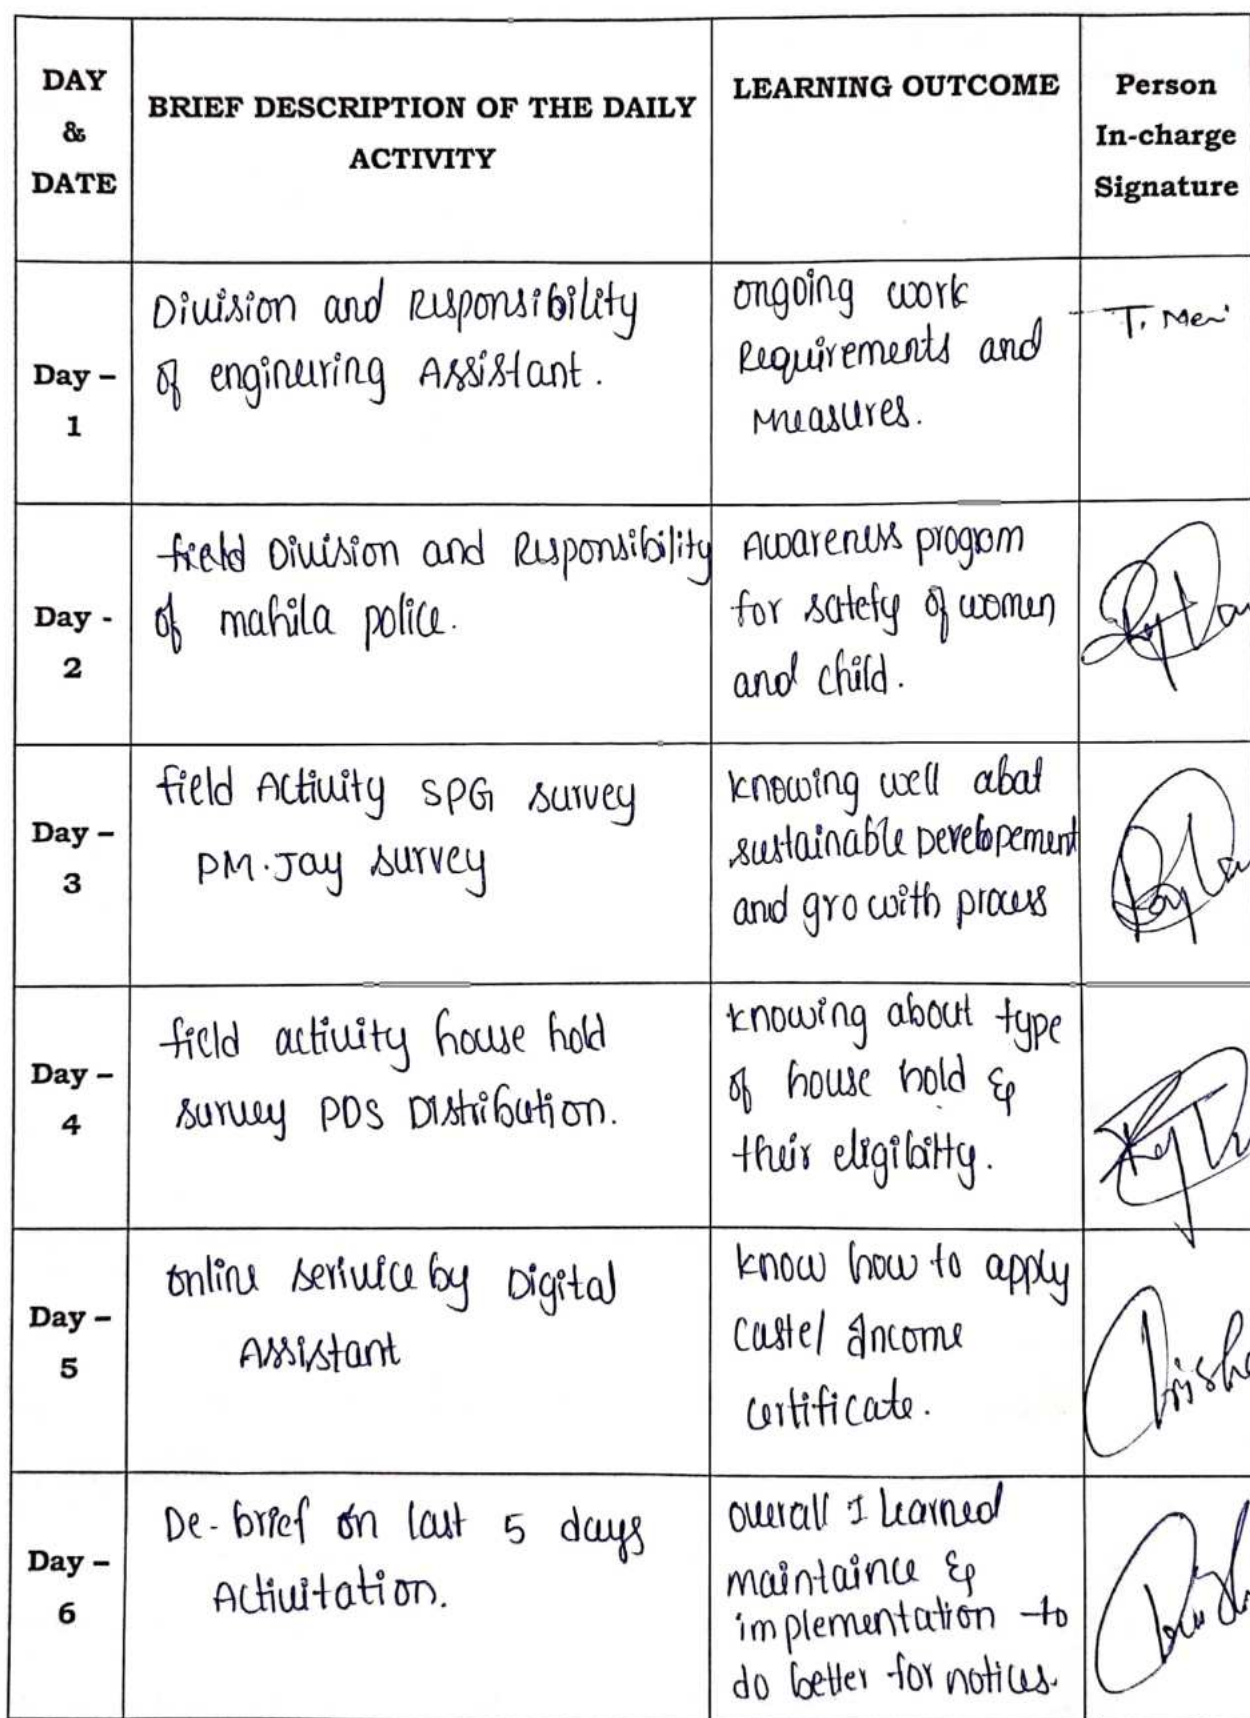 DAY
&
DATE
BRIEF DESCRIPTION OF THE DAILY
ACTIVITY
LEARNING OUTCOME
Person
In-charge
Signature
Day –
1
Division and Responsibility
of engineering Assistant.
ongoing work
Requirements and
Measures.
T. Meri
Day -
2
field Division and Responsibility
of mahila police.
Awareness progrom
for satefy of women
and child.
Day –
3
field Activity SPG survey
PM.Jay survey
knowing well abat
sustainable Developement
and growith process
Day –
4
field activity house hold
survey PDS Distribution.
knowing about type
of house hold &
their eligibitty.
Day –
5
online serivice by Digital
Assistant
know how to apply
caste/ Income
certificate.
Day –
6
De-brief on last 5 days
Activitation.
overall I learned
maintaince &
implementation to
do better for notices.